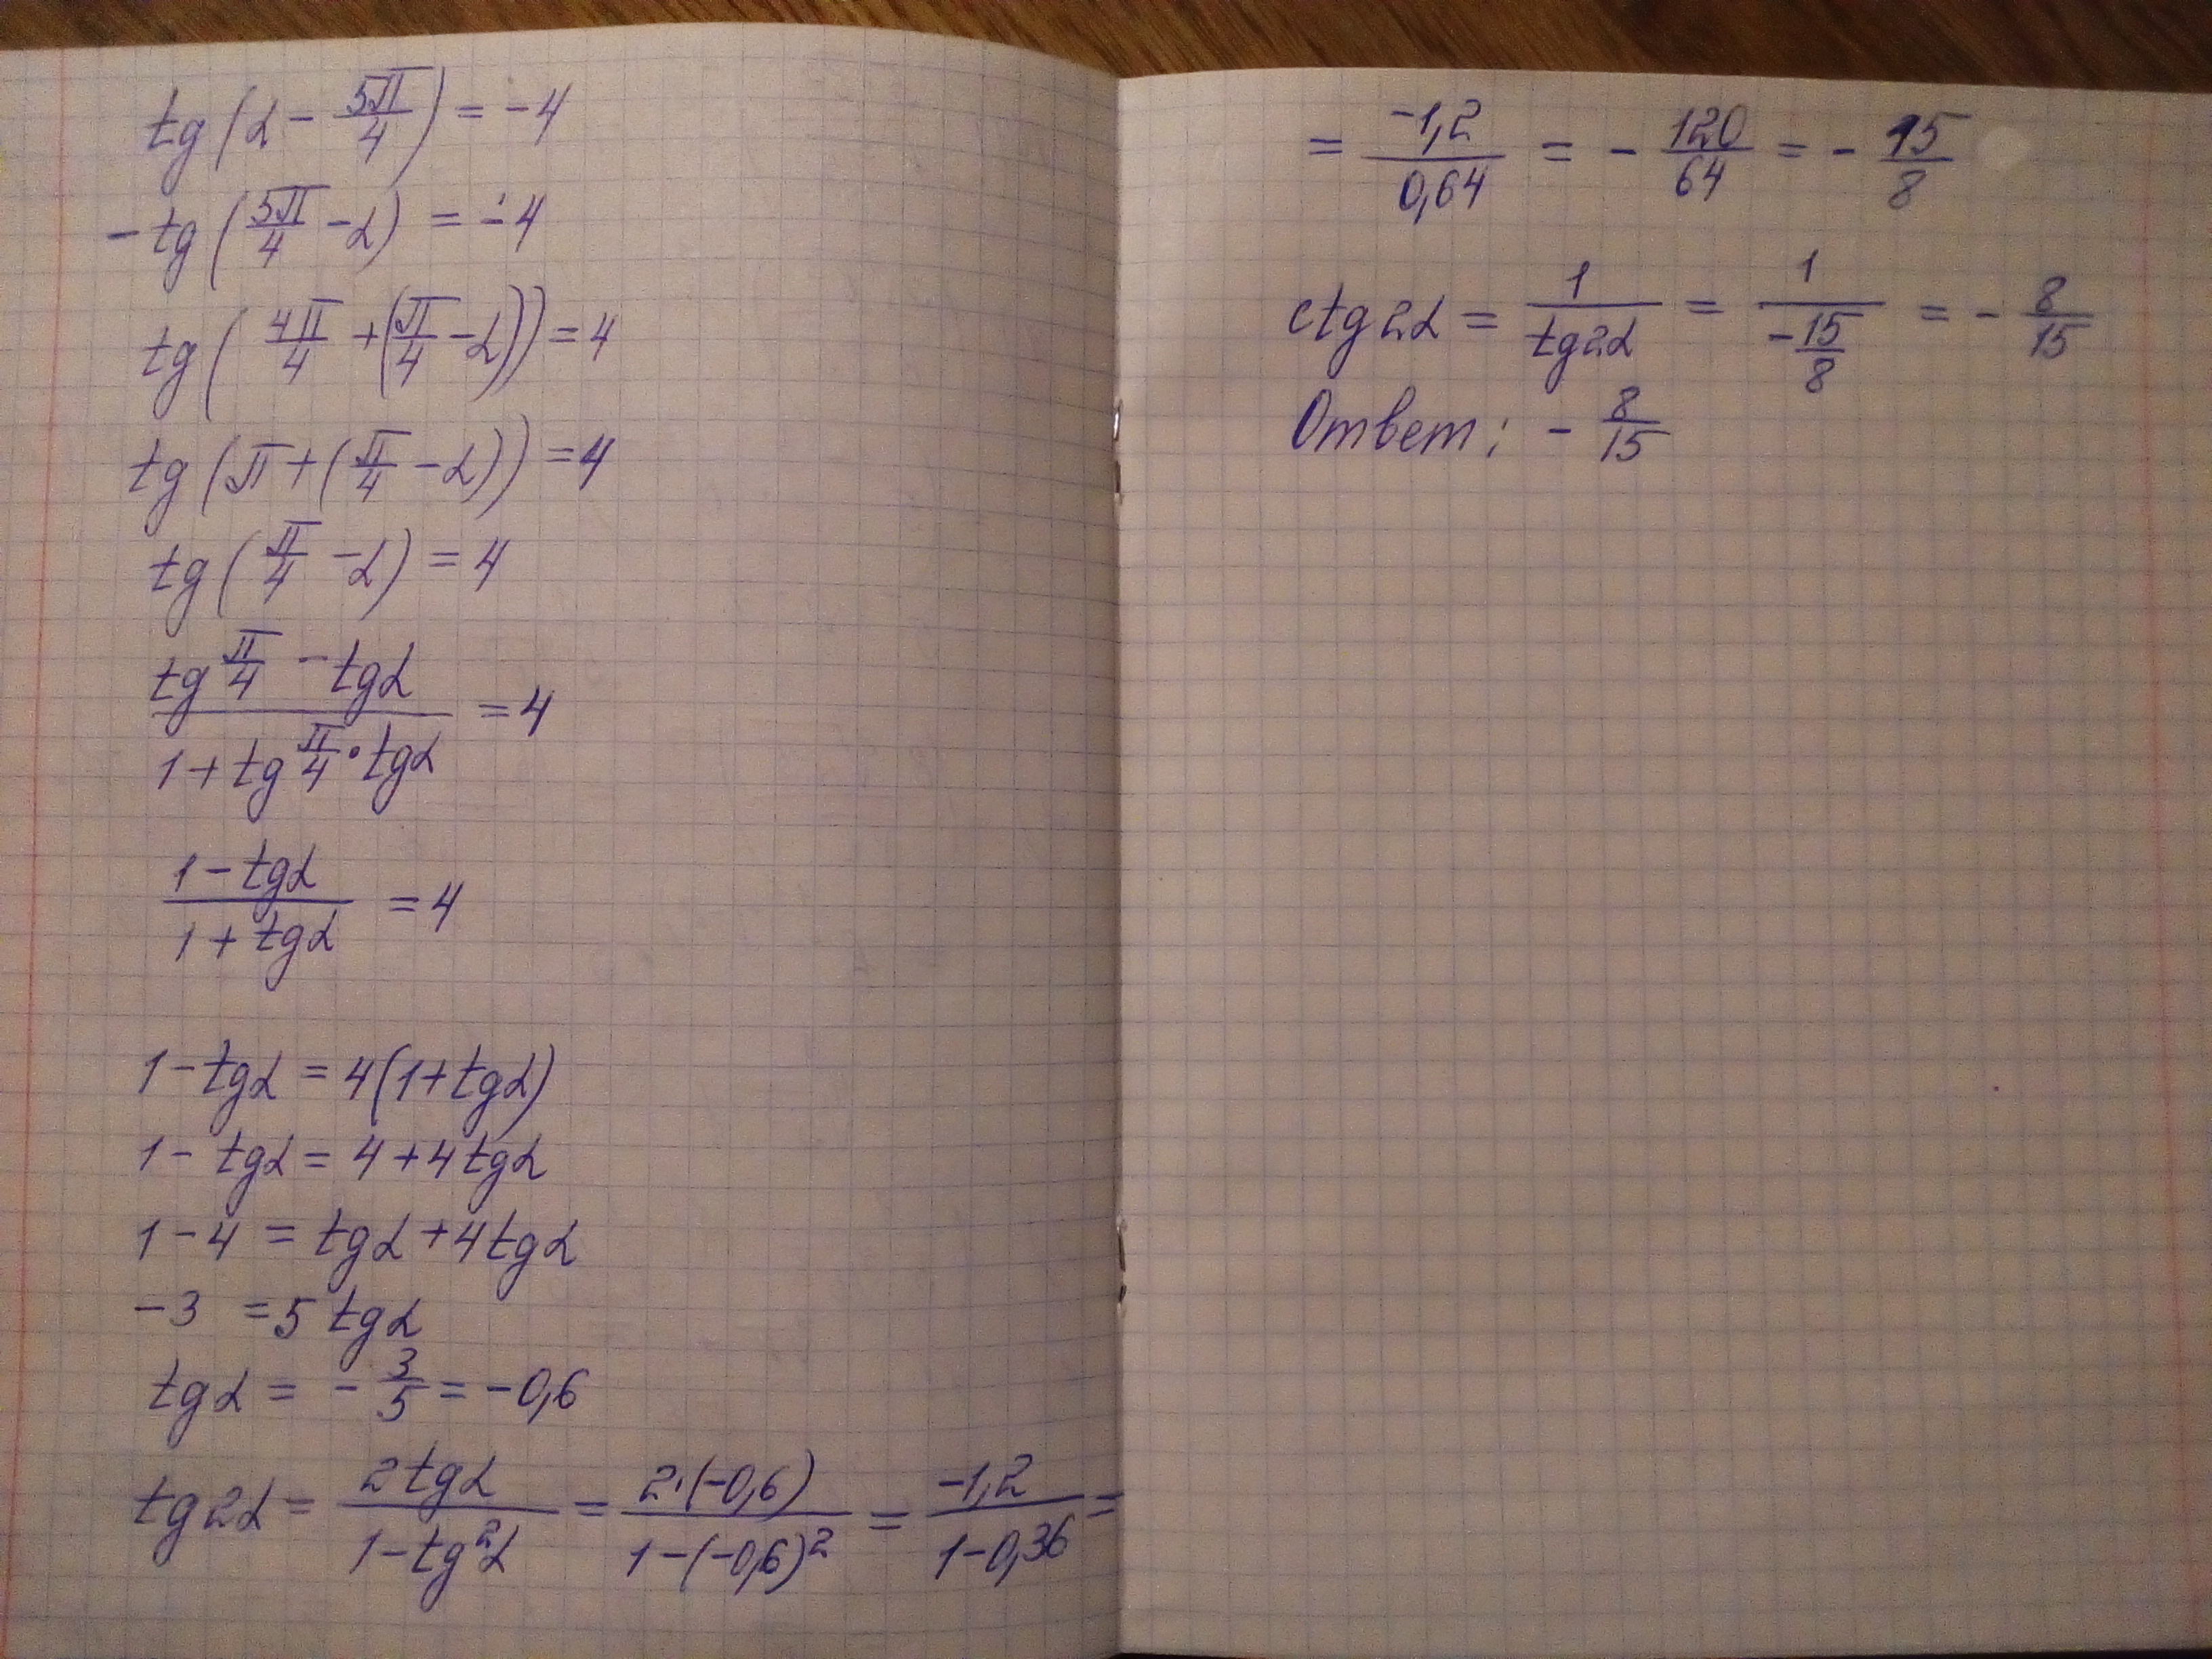 tg(α - 5π/4) = -4
-tg(5π/4 - α) = -4
tg(4π/4 + (π/4 - α)) = 4
tg(π + (π/4 - α)) = 4
tg(π/4 - α) = 4
(tg π/4 - tgα)/(1 + tg π/4 · tgα) = 4
(1 - tgα)/(1 + tgα) = 4
1 - tgα = 4(1 + tgα)
1 - tgα = 4 + 4tgα
1 - 4 = tgα + 4tgα
-3 = 5 tgα
tgα = -3/5 = -0,6
tg2α = 2tgα/(1 - tg²α) = 2·(-0,6)/(1 - (-0,6)²) = -1,2/(1 - 0,36) =
= -1,2/0,64 = -120/64 = -15/8
ctg2α = 1/tg2α = 1/(-15/8) = -8/15
Ответ: -8/15